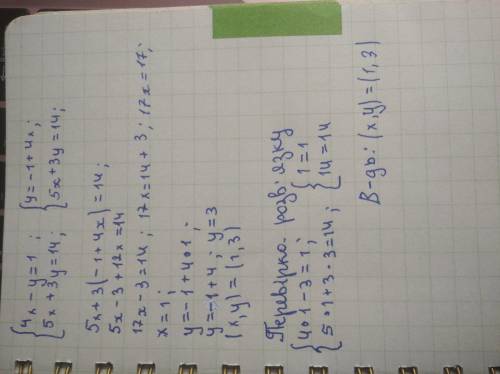 {4x - y = 1 ; {y = -1 + 4x ;
{5x + 3y = 14 ; {5x + 3y = 14 ;
5x + 3(-1 + 4x) = 14 ;
5x - 3 + 12x = 14
17x - 3 = 14 ; 17x = 14 + 3 ; 17x = 17 ;
x = 1 ;
y = -1 + 4 • 1 ;
y = -1 + 4 ; y = 3
(x, y) = (1, 3)
Перевірка розв'язку
{4 • 1 - 3 = 1 ; {1 = 1
{5 • 1 + 3 • 3 = 14 ; {14 = 14
В-дь: (x, y) = (1, 3)